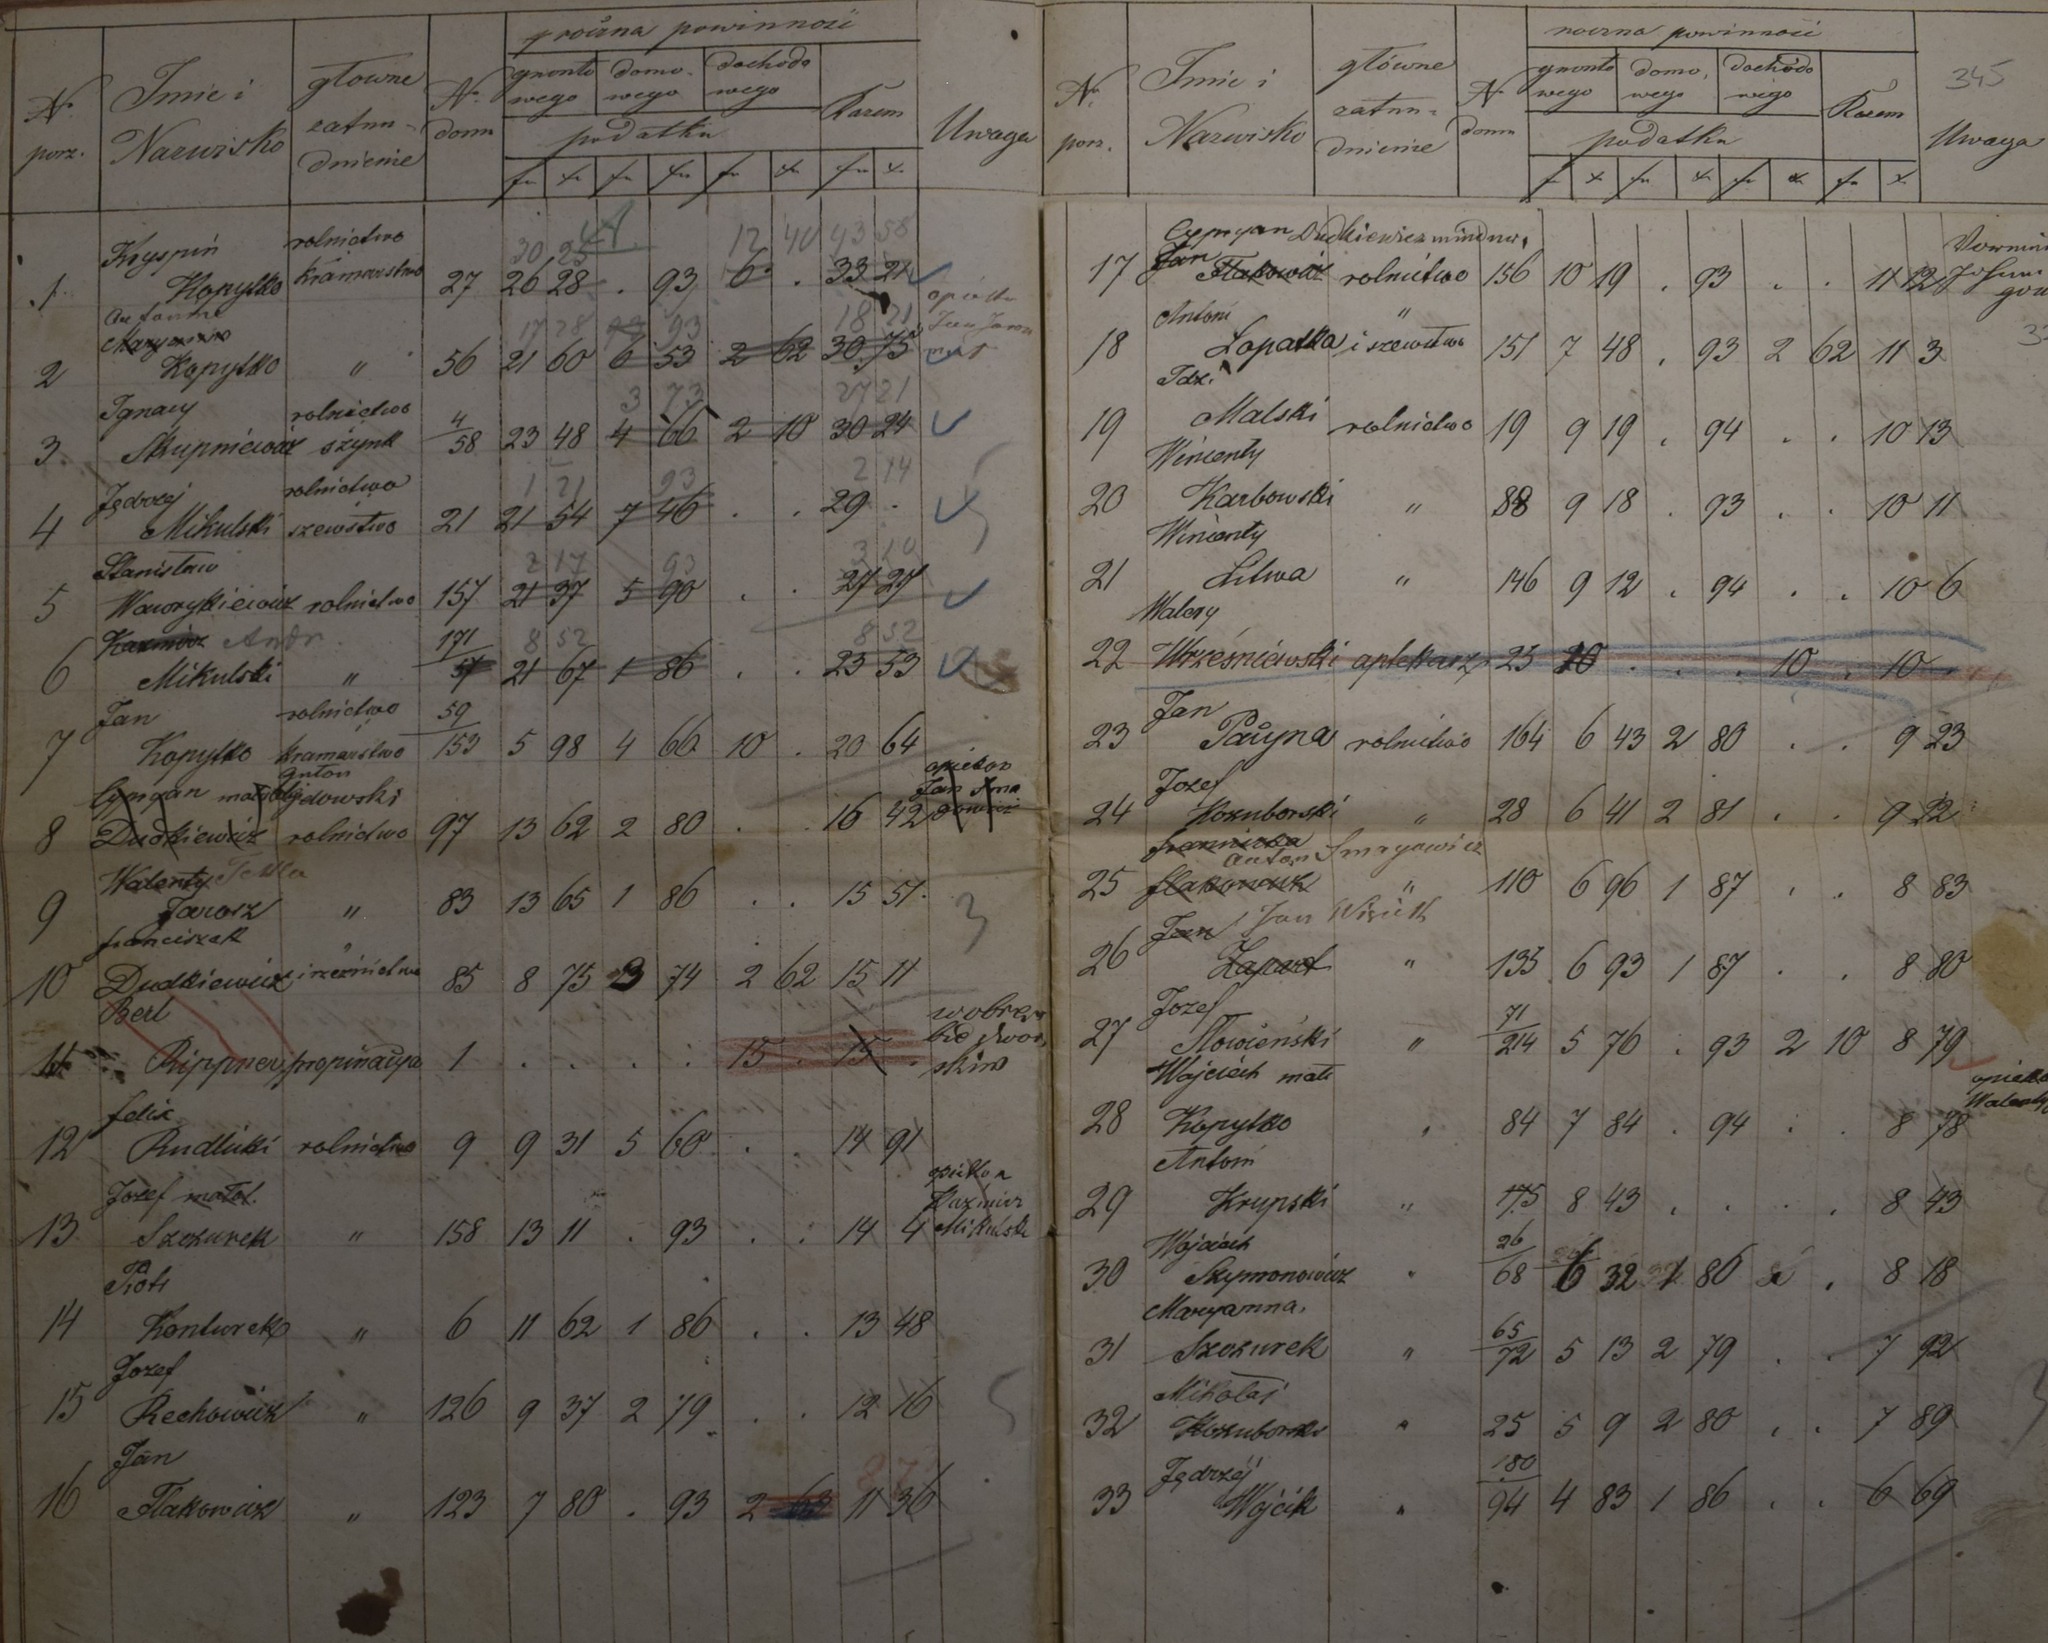 roczna powinność
N. porz. Imie i Nazwisko główne zatrudnienie N. domu gruntowego domowego dochodowego podatku Razem Uwaga
fr. x. fr. x. fr. x. fr. x.
30 25 12 40 43 58
1 Kryspin Kopytko rolnictwo kramarstwo 27 26 28 . 93 6 . 33 21
17 28 93 18 21
2 Maryanna Kopytko " 56 21 60 6 53 2 62 30 75
3 73 27 21
3 Ignacy Skupniewicz rolnictwo szynk 4/58 23 48 4 66 2 10 30 24
1 21 93 2 14
4 Jędrzej Mikulski rolnictwo szewstwo 21 21 54 7 46 . . 29 .
2 17 93 3 10
5 Stanisław Wawrykiewicz rolnictwo 157 21 37 5 90 . . 27 27
8 52 8 52
6 Kazmierz Andr. Mikulski " 171/57 21 67 1 86 . . 23 53
7 Jan Kopytko rolnictwo kramarstwo 59/153 5 98 4 66 10 . 20 64
8 Cypryan małol. Dudkiewicz rolnictwo 97 13 62 2 80 . . 16 42
9 Walenty Tekla Jarosz " 83 13 65 1 86 . . 15 51
10 Franciszek Dudkiewicz " i rzeźnictwo 85 8 75 3 74 2 62 15 11
11 Berl Rippner propinacya 1 . . . . 15 . 15 .
12 Felix Rudlicki rolnictwo 9 9 31 5 60 . . 14 91
13 Jozef małol. Szczurek " 158 13 11 . 93 . . 14 4 opiekun Kazmierz Mikulski
14 Piotr Konturek " 6 11 62 1 86 . . 13 48
15 Jozef Rechowicz " 126 9 37 2 79 . . 12 16
16 Jan Flakowicz " 123 7 80 . 93 2 63 11 36
345
roczna powinność
N. porz. Imie i Nazwisko główne zatrudnienie N. domu gruntowego domowego dochodowego podatku Razem Uwaga
fr. x. fr. x. fr. x. fr. x.
17 Cypryan Dudkiewicz Jan Flakowicz rolnictwo 156 10 19 . 93 . . 11 12
18 Antoni Lopatka " i szewstwo 151 7 48 . 93 2 62 11 3
19 Idzi Malski rolnictwo 19 9 19 . 94 . . 10 13
20 Wincenty Karbowski " 88 9 18 . 93 . . 10 11
21 Wincenty Litwa " 146 9 12 . 94 . . 10 6
22 Walery Wrześniewski aptekarz 23 10 . . . 10 . 10 .
23 Jan Pacyna rolnictwo 164 6 43 2 80 . . 9 23
24 Jozef Kozuborski " 28 6 41 2 81 . . 9 22
25 Franciszka Flakowicz Anton Smagowicz " 110 6 96 1 87 . . 8 83
26 Jan Łapart Jan Wojcik " 135 6 93 1 87 . . 8 80
27 Jozef Słowieński " 71/214 5 76 . 93 2 10 8 79
28 Wojciech mał. Kopytko " 84 7 84 . 94 . . 8 78
29 Antoni Krupski " 175 8 43 . . . . 8 43
30 Wojciech Szymonowicz " 26/68 6 32 1 86 . . 8 18
31 Maryanna Szczurek " 65/72 5 13 2 79 . . 7 92
32 Mikołaj Kozuborski " 25 5 9 2 80 . . 7 89
33 Jędrzej Wójcik " 180/94 4 83 1 86 . . 6 69